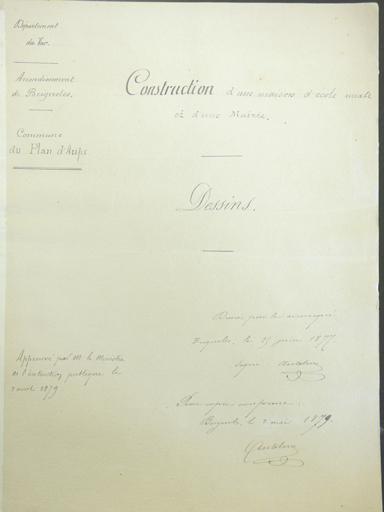 Département
du Var.
Arrondissement
de Brignoles.
Commune
du Plan d'Aups
Construction d'une maison d'école mixte
et d'une Mairie.
Dessins.
Dressé par le soussigné
Brignoles, le 25 juin 1877
Signé
Approuvé par M. le Ministre
de l'instruction publique le
2 avril 1879
Pour copie conforme:
Brignoles, le 2 mai 1879.